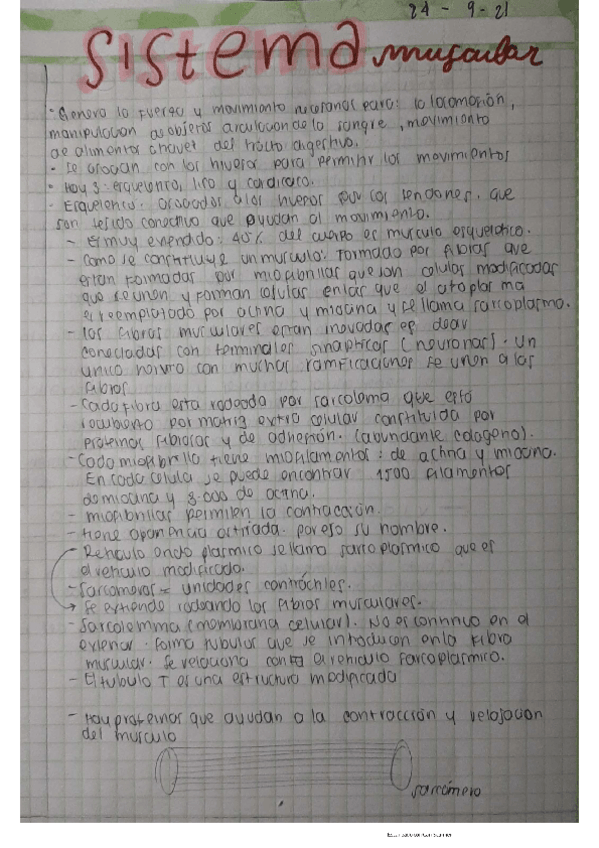 24 - 9 - 21
Sistema muscular
- Genera la fuerza y movimiento necesarios para: la locomoción,
manipulación de objetos circulación de la sangre, movimiento
de alimentos através del tracto digestivo.
- Se asocian con los huesos para permitir los movimientos
- Hay 3: esquelético, liso y cardíaco.
- Esquelético: asociados a los huesos por los tendones, que
son tejido conectivo que ayudan al movimiento.
- Es muy extendido: 40% del cuerpo es musculo esquelético.
- Como se constituye un musculo: Formado por fibras que
estan formadas por miofibrillas que son celulas modificadas
que se unen y forman celulas en las que el citoplasma
es reemplazado por actina y miosina y se llama sarcoplasma.
- Las fibras musculares estan inovadas es decir
conectadas con terminales sinapticos (neuronas). Un
unico nervio con muchas ramificaciones se unen a las
fibras
- Cada fibra esta rodeada por sarcolema que está
recubierto por matriz extra celular constituida por
proteinas fibrosas y de adhesión. (abundante colageno).
- Cada miofibrilla tiene miofilamentos: de actina y miosina.
En cada celula se puede encontrar 1500 filamentos
de miosina y 3.000 de actina.
- miofibrillas permiten la contracción.
- tiene apariencia estriada. por eso su nombre.
- Reticulo endo plasmico se llama sarcoplasmico que es
el reticulo modificado.
- Sarcomeros = unidades contráctiles.
- Se extiende rodeando las fibras musculares.
- Sarcolemma (membrana celular). No es continuo en el
exterior. forma tubulos que se introducen en la fibra
muscular. Se relaciona con el reticulo sarcoplasmico.
- El tubulo T es una estructura modificada
- Hay proteinas que ayudan a la contracción y relajación
del musculo
sarcómero